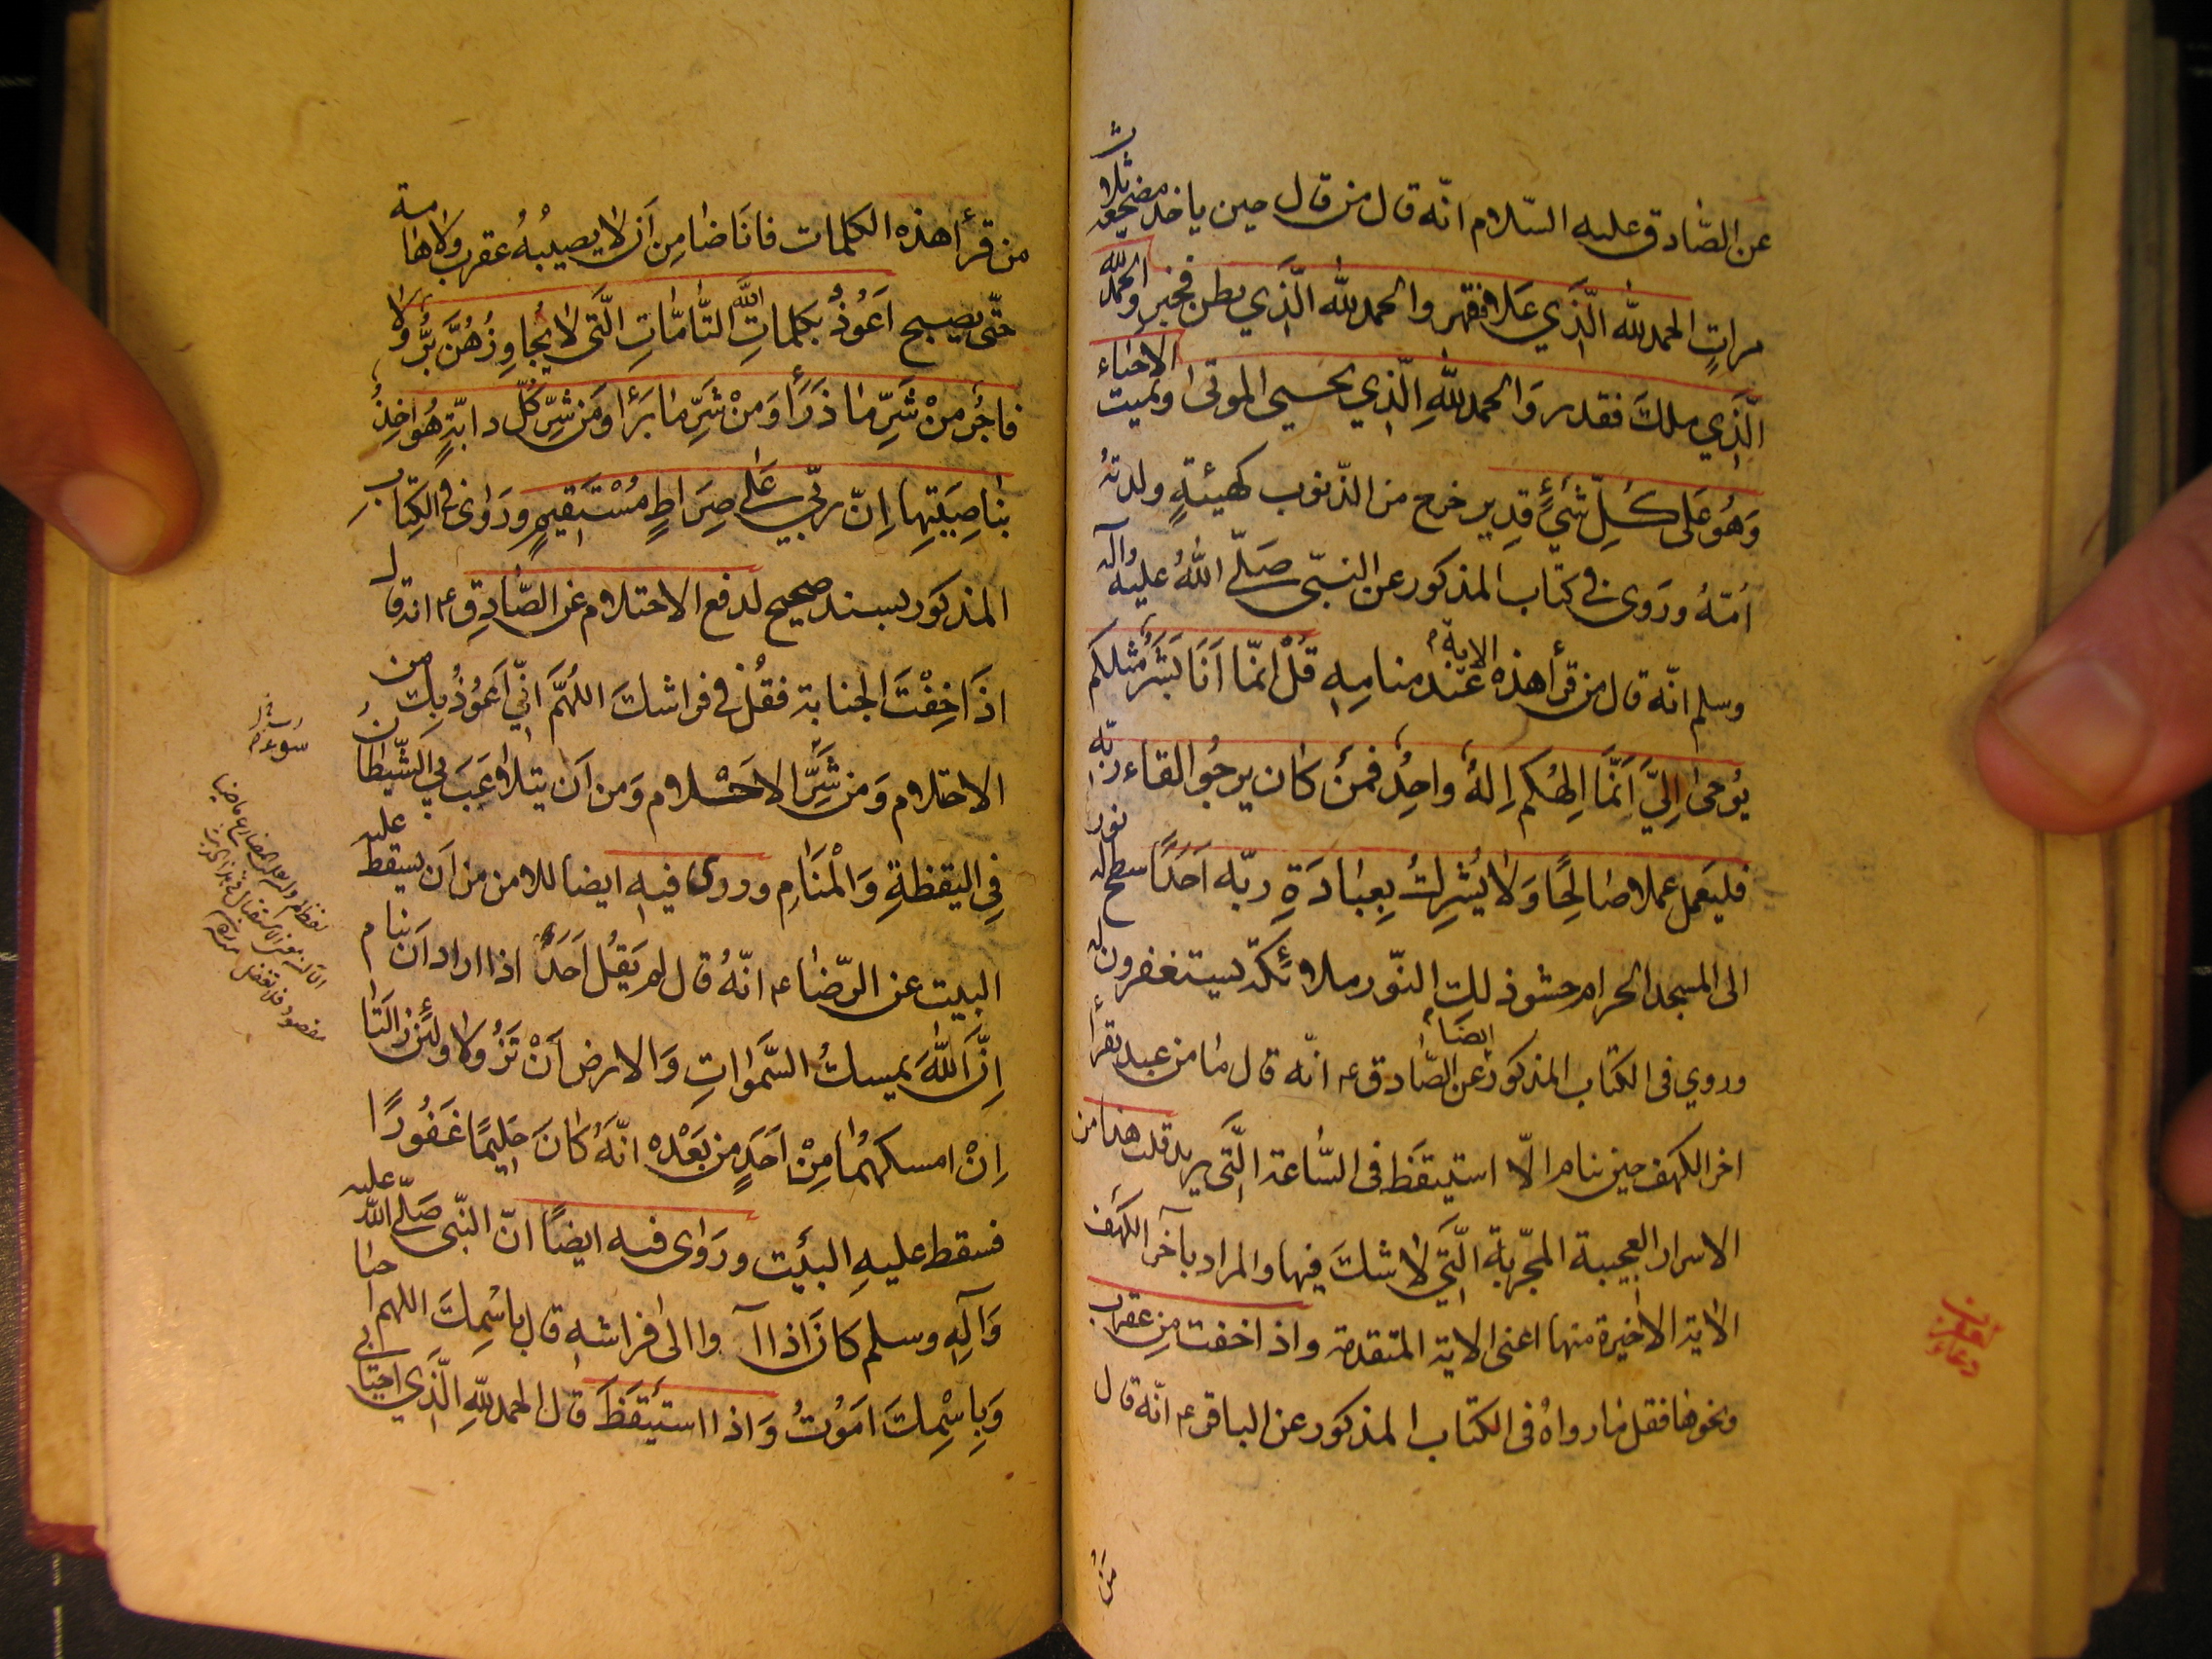 عن الصّادق عليه السّلام انّه قال من قال حين ياخذ مضجعه ثلاث
مراتٍ الحمد لله الّذي عَلا فقهر والحمد لله الّذي بطن فخبر والحمد لله
الّذي ملك فقدر وَالحمد للهِ الّذي يحيي الموتى ويميت الاحياء
وَهُو عَلى كُلِّ شَيْءٍ قدِير خرج من الذّنوب كهيئةٍ ولدتهُ
اُمّهُ ورَوى في كتاب المذكور عن النبّى صَلّى اللهُ عليه وآله
وسلم انّه قال من قرأ هذه الاية عند منامِهِ قُلْ انمّا اَنَا بَشَرٌ مثلكم
يُوحى اِليَّ اَنمَّا اِلهُكم اِلهٌ واحِدٌ فمن كان يرجُوا لقاء ربّهِ
فليَعمل عملا صالِحًا وَلا يُشرِك بِعِبادَةِ ربّه اَحَدًا سطح له نور
الى المسجد الحرام حشو ذلك النّور ملائكة يستغفرون له
وروي فى الكتاب المذكور عن الصّادق ع ايضا انّه قال ما من عبد يقرأ
اخر الكهف حين ينام الّا استيقظ فى السّاعة الّتى يريد قلت هذا من
الاسرار العجيبة المجّربة الّتي لا شكَ فيها والمراد بآخر الكهف
الاية الاخيرة منها اعنى الاية المتقدمة واذا خفت مِن عقرب
ونحوها فقل ما رواهُ فى الكتاب المذكور عن الباقر ع انّه قال
من
دعاء
من قرأ هذه الكلمات فانَا ضامِن اَن لا يصيبُهُ عقرب ولا هامة
حتّى يصبح اَعُوذُ بكلماتِ الله التّامّاتِ الّتى لا يُجاوِزُهُنَّ بَرٌّ ولا
فاجُر مِنْ شَرِّ ما ذَرَأ وَمِنْ شَرِّ ما بَرَأ ومَن شرِّ كُلّ دابّةٍ هُو اخِذُ
بناصِيَتِها اِنّ ربّي عَلى صِرَاطٍ مُسْتَقِيمٍ ورَوى في الكِتابِ
المذكور بسند صحيح لدفع الاحتلام عن الصّادِق ع انه قال
اذَا خِفْتَ الجنابة فقُل في فراشك اللهُمَّ انّي اَعوُذُ بِك من
الاحتلام وَمن شَرِّ الاحْلام وَمن اَن يتلاعَبَ بي الشّيطانُ
فِي اليقظةِ وَالْمنَامِ وروى فيهِ ايضا للامن من اَن يسقط عليه
البيت عن الرّضا ع انّهُ قال لم يَقُل اَحَدٌ اذا اراد اَن ينام
اِنَّ اللهَ يمسكُ السَّمواتِ وَالارض اَنْ تَزُولا ولئن زالتا
اِنْ امسكهُما مِنْ اَحَدٍ من بَعْدِهِ انّهُ كانَ حَليمًا غَفُورًا
فسقط عليهِ البيت ورَوى فيه ايضًا انّ النّبى صَلّى الله عليه
وَآلِهِ وسلم كانَ اذا اَوا الى فراشهِ قال باسْمِكَ اللهم احيا
وَبِاسْمِكَ امَوُتُ وَاذا استَيقظَ قال الحمد للّهِ الّذي احيانى